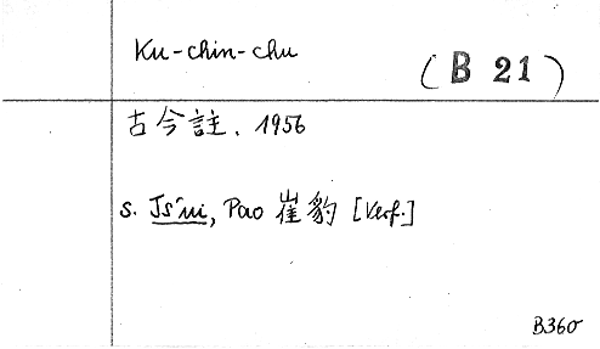 Ku-chin-chu
(B 21)
古今註. 1956
s. Ts'ui, Pao 崔豹 [Verf.]
B360